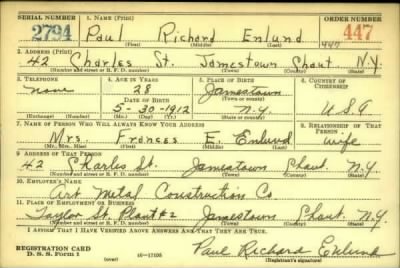 SERIAL NUMBER 1. NAME (Print) ORDER NUMBER
2794 Paul Richard Enlund 447
(First) (Middle) (Last) 447
2. ADDRESS (Print)
42 Charles St. Jamestown Chaut. N.Y.
(Number and street or R. F. D. number) (Town) (County) (State)
3. TELEPHONE 4. AGE IN YEARS 5. PLACE OF BIRTH 6. COUNTRY OF CITIZENSHIP
none 28 Jamestown
DATE OF BIRTH (Town or county)
5-30-1912 N.Y. U.S.A
(Exchange) (Number) (Mo.) (Day) (Yr.) (State or country)
7. NAME OF PERSON WHO WILL ALWAYS KNOW YOUR ADDRESS 8. RELATIONSHIP OF THAT PERSON
Mrs. Frances E. Enlund wife
(Mr., Mrs., Miss) (First) (Middle) (Last)
9. ADDRESS OF THAT PERSON
42 Charles St. Jamestown Chaut. N.Y
(Number and street or R. F. D. number) (Town) (County) (State)
10. EMPLOYER'S NAME
Art Metal Construction Co
11. PLACE OF EMPLOYMENT OR BUSINESS
Taylor St. Plant #2 Jamestown Chaut. N.Y
(Number and street or R. F. D. number) (Town) (County) (State)
I AFFIRM THAT I HAVE VERIFIED ABOVE ANSWERS AND THAT THEY ARE TRUE.
REGISTRATION CARD
D. S. S. Form 1 (over) 16-17105 Paul Richard Enlund
(Registrant's signature)